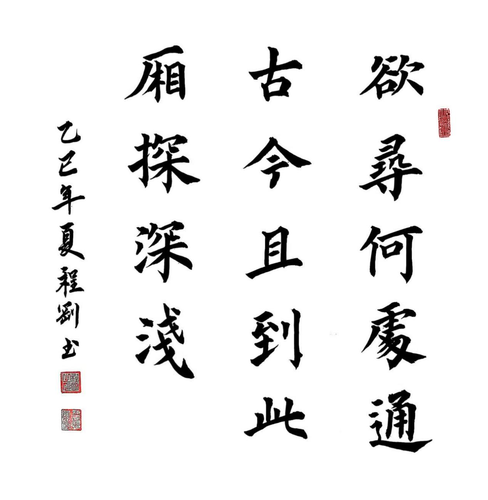 欲尋何處通
古今且到此
厢探深淺
乙巳年夏程劉书